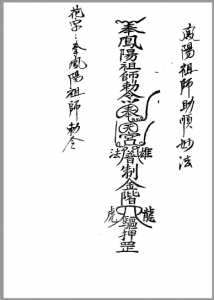 鳳陽祖師助順妙法
奉鳳陽祖師勅令
雄
法
制金階
龍
虎
驅押罡
花字:奉鳳陽祖師勅令